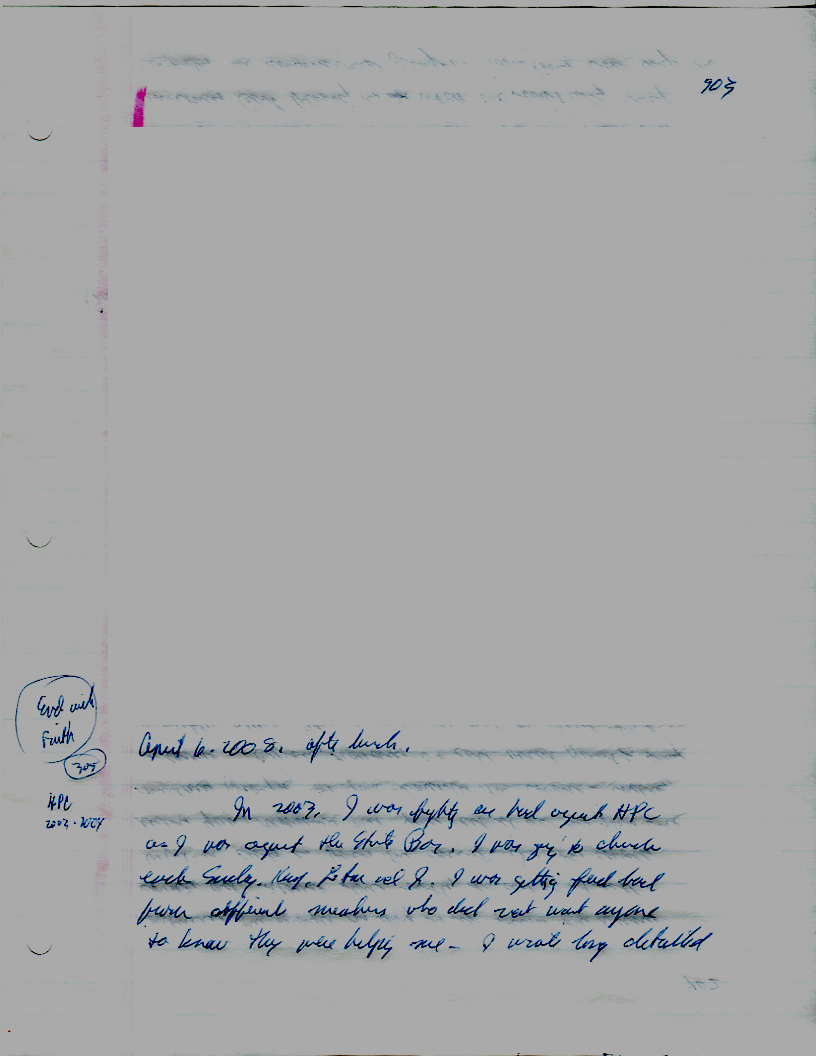 903
End with
Faith
305
April 6. 2008. after lunch.
HPC
2003-2004
In 2003, I was fighting as hard against HPC
as I was against the State Bar. I was going to church
each Sunday. and I. I was getting feed back
from different members who did not want anyone
to know they were helping me - I wrote long detailed